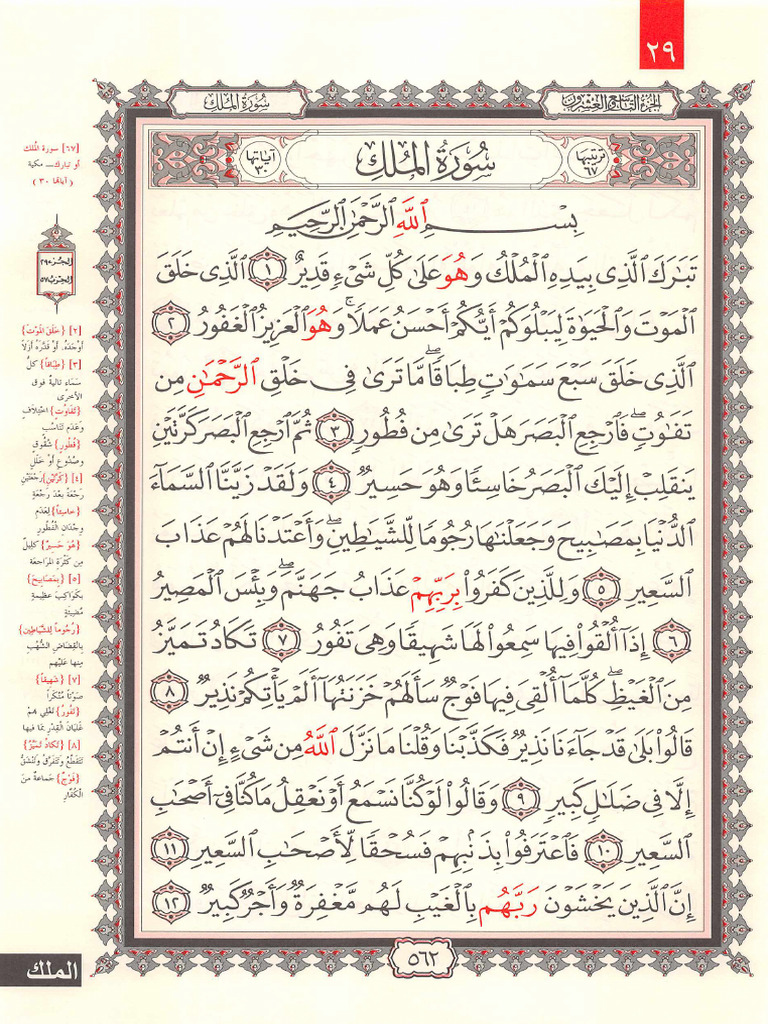 ٢٩
سورة الملك
الجزء التاسع والعشرون
ترتيبها ٦٧
سُورَةُ الْمُلْكِ
آياتها ٣٠
بِسْمِ اللَّهِ الرَّحْمَٰنِ الرَّحِيمِ
تَبَارَكَ الَّذِي بِيَدِهِ الْمُلْكُ وَهُوَ عَلَىٰ كُلِّ شَيْءٍ قَدِيرٌ ﴿١﴾ الَّذِي خَلَقَ
الْمَوْتَ وَالْحَيَوٰةَ لِيَبْلُوَكُمْ أَيُّكُمْ أَحْسَنُ عَمَلًا ۚ وَهُوَ الْعَزِيزُ الْغَفُورُ ﴿٢﴾
الَّذِي خَلَقَ سَبْعَ سَمَٰوَٰتٍ طِبَاقًا ۖ مَّا تَرَىٰ فِي خَلْقِ الرَّحْمَٰنِ مِن
تَفَٰوُتٍ ۖ فَارْجِعِ الْبَصَرَ هَلْ تَرَىٰ مِن فُطُورٍ ﴿٣﴾ ثُمَّ ارْجِعِ الْبَصَرَ كَرَّتَيْنِ
يَنقَلِبْ إِلَيْكَ الْبَصَرُ خَاسِئًا وَهُوَ حَسِيرٌ ﴿٤﴾ وَلَقَدْ زَيَّنَّا السَّمَآءَ
الدُّنْيَا بِمَصَٰبِيحَ وَجَعَلْنَٰهَا رُجُومًا لِّلشَّيَٰطِينِ ۖ وَأَعْتَدْنَا لَهُمْ عَذَابَ
السَّعِيرِ ﴿٥﴾ وَلِلَّذِينَ كَفَرُوا بِرَبِّهِمْ عَذَابُ جَهَنَّمَ ۖ وَبِئْسَ الْمَصِيرُ
﴿٦﴾ إِذَآ أُلْقُوا فِيهَا سَمِعُوا لَهَا شَهِيقًا وَهِيَ تَفُورُ ﴿٧﴾ تَكَادُ تَمَيَّزُ
مِنَ الْغَيْظِ ۖ كُلَّمَآ أُلْقِيَ فِيهَا فَوْجٌ سَأَلَهُمْ خَزَنَتُهَآ أَلَمْ يَأْتِكُمْ نَذِيرٌ ﴿٨﴾
قَالُوا بَلَىٰ قَدْ جَآءَنَا نَذِيرٌ فَكَذَّبْنَا وَقُلْنَا مَا نَزَّلَ اللَّهُ مِن شَيْءٍ إِنْ أَنتُمْ
إِلَّا فِي ضَلَٰلٍ كَبِيرٍ ﴿٩﴾ وَقَالُوا لَوْ كُنَّا نَسْمَعُ أَوْ نَعْقِلُ مَا كُنَّا فِيٓ أَصْحَٰبِ
السَّعِيرِ ﴿١٠﴾ فَاعْتَرَفُوا بِذَنۢبِهِمْ فَسُحْقًا لِّأَصْحَٰبِ السَّعِيرِ ﴿١١﴾
إِنَّ الَّذِينَ يَخْشَوْنَ رَبَّهُم بِالْغَيْبِ لَهُم مَّغْفِرَةٌ وَأَجْرٌ كَبِيرٌ ﴿١٢﴾
٥٦٢
[٦٧] سورة الملك
أو تبارك ــ مكية
( آياتها ٣٠ )
الجزء ٢٩
الحزب ٥٧
[٢] {خَلَقَ الْمَوْتَ}
أوْجَدَهُ، أوْ قَدَّرَهُ أزَلاً
[٣] {طِبَاقاً} كلُّ
سَمَاءٍ تالية فوق
الأخرى
{تَفَاوُت} اختِلافٍ
وعَدَم تَنَاسُبٍ
{فُطُور} شُقُوقٍ
وصُدُوعٍ أوْ خَلَلٍ
[٤] {كَرَّتَيْن} رَجْعَتَيْنِ
رَجْعَةً بعْدَ رَجْعَةٍ
{خاسِئاً} لِعَدَمِ
وِجْدَانِ الفُطُورِ
{هُوَ حَسِيرٌ} كَلِيلٌ
مِن كَثْرَةِ المُرَاجَعَةِ
[٥] {بِمَصَابِيحَ}
بِكَوَاكِبَ عظِيمةٍ
مُضِيئةٍ
{رُجُوماً لِلشَّيَاطِين}
بانْقِضَاضِ الشُّهُبِ
مِنها عَليْهم
[٧] {شَهِيقاً}
صَوْتاً مُنْكَراً
{تَفُورُ} تَغْلِي بهمْ
غَلَيَانَ القِدْرِ بمَا فيها
[٨] {تَكادُ تَمَيَّزُ}
تَتَقَطَّعُ وتَتَفَرَّقُ وتَنْشَقُّ
{فَوْجٌ} جَمَاعَةٌ مِنَ
الكُفّارِ
الملك